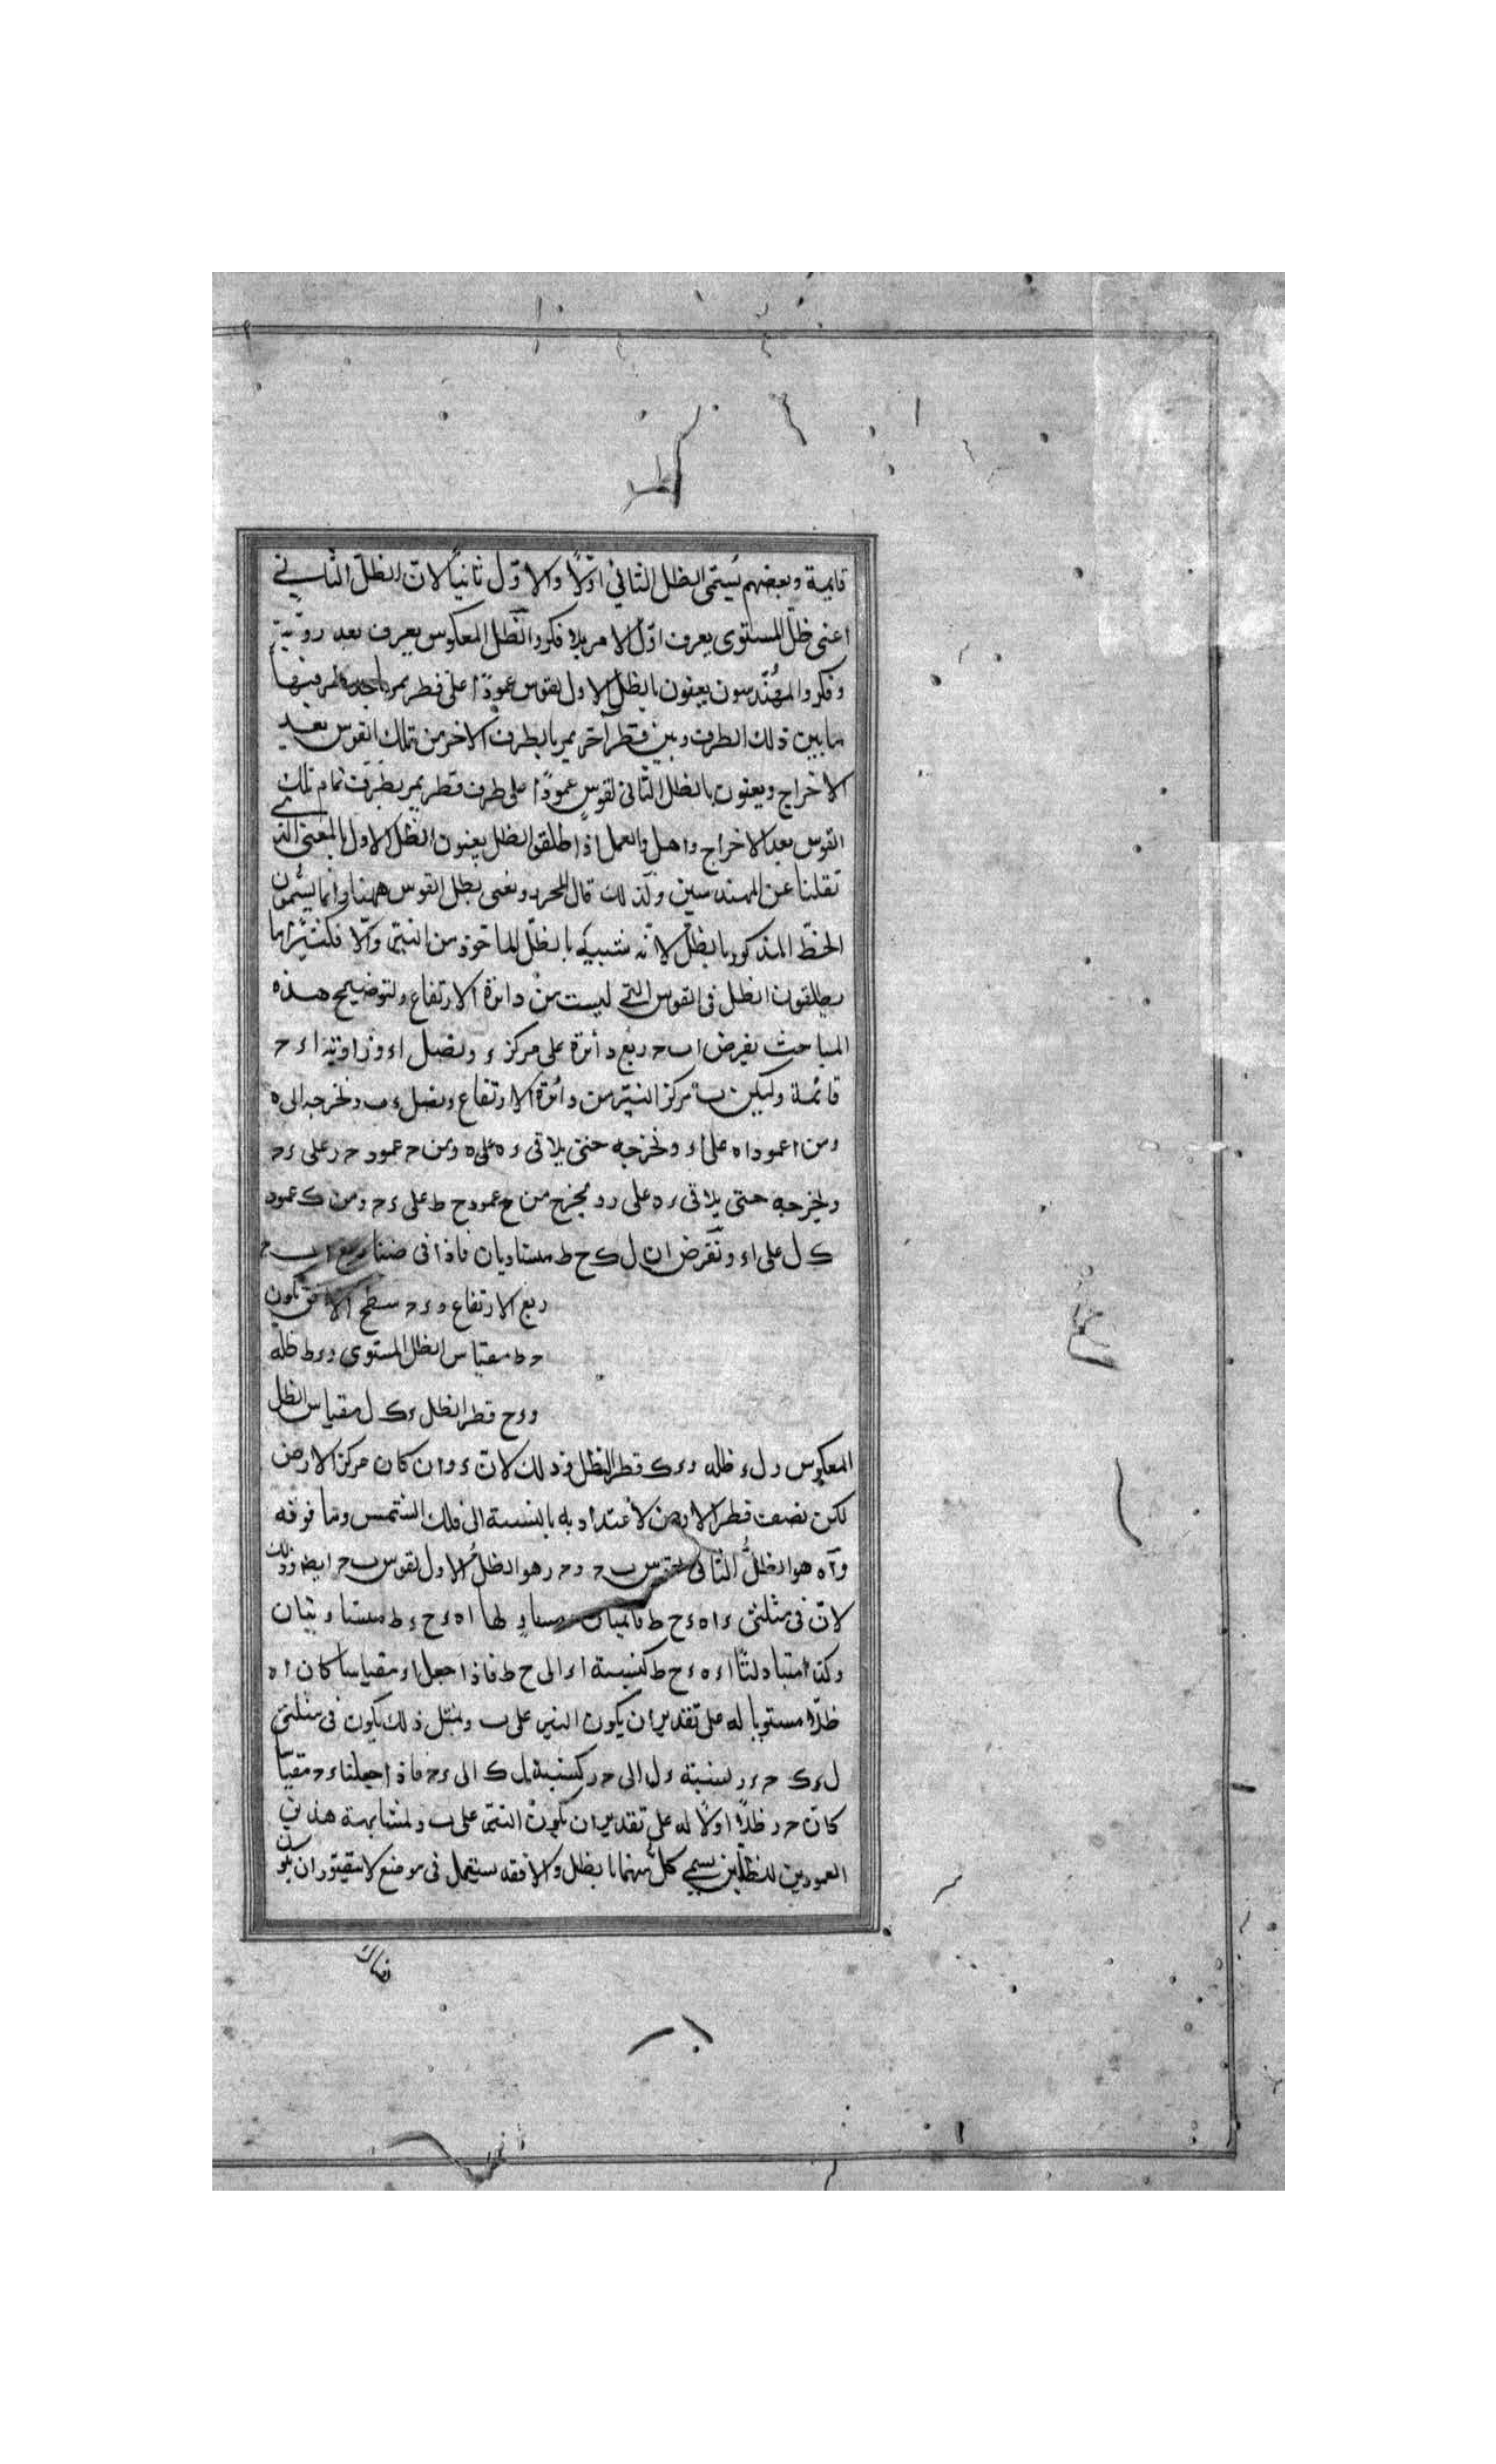 قايمة وبعضهم يُسمّى الظل الثاني اوّلاً والاوّل ثانياً لان الظلّ الثاني
اعنى ظلّ المستوى يعرف اوّل الامر بلا فكر والظل المعكوس يعرف بعد رويّة
وفكر والمهندسون يعنون بالظل الاول لقوس عموداً على قطر يمر باحد طرفيها
مابين ذلك الطرف وبين قطر آخر يمر بالطرف الآخر من تلك القوس بعد
الاخراج ويعنون بالظل الثانى لقوس عموداً على طرف قطر يمر بطرف تمام تلك
القوس بعد الاخراج واهل العمل اذا طلقوا الظل يعنون الظل الاول بالمعنى الذى
نقلنا عن المهندسين وكذلك قال المحرر ونعنى بظل القوس ههنا وانما يسمون
الخطّ المذكور بالظلّ لانّه شبيه بالظلّ الماخوذ من النيّر والا فكثيراً ما
يطلقون الظل فى القوس التى ليست من دائرة الارتفاع ولتوضيح هذه
المباحث نفرض ا ب ح ربع دائرة على مركز ء ونصل ا ء وزاوية ا ء ح
قائمة وليكن ب مركز النيّر من دائرة الارتفاع ونصل ء ب ونخرجه الى ه
ومن ا عمود ا ه على ا ء ونخرجه حتى يلاقى ء ه على ه ومن ح عمود ح ر على ء ح
ونخرجه حتى يلاقى ء ه على ر ونخرج من ح عمود ح ط على ء ح ومن ك عمود
ك ل على ا ء ونفرض ان ل ك ح ط متساويان فاذا فرضنا ربع ا ب ح
ربع الارتفاع و ء ح سطح الافق يكون
ح ط مقياس الظل المستوى و ء ط ظله
و ء ح قطر الظل و ك ل مقياس الظل
المعكوس و ل ء ظله و ء ك قطر الظل وذلك لان ء وان كان مركز الارض
لكن نصف قطر الارض لا اعتداد به بالنسبة الى فلك الشمس وما فوقه
و ا ه هو الظلّ الثانى لقوس ب ح و ح ر هو الظلّ الاول لقوس ب ح ايضا وذلك
لان فى مثلثى ء ا ه ء ح ط قائمتان ا ه ء ح ء ط متساويتان
وكذا متبادلتا ا ء ه ء ح ط كنسبة ا ء الى ح ط فاذا جعل ا ء مقياسا كان ا ه
ظلّا مستويا له على تقدير ان يكون النير على ب وبمثل ذلك يكون فى مثلثى
ل ء ك ح ء ر نسبة ء ل الى ح ر كنسبة ل ك الى ء ح فاذا جعلنا ء ح مقياسا
كان ح ر ظلّاً اولاً له على تقدير ان يكون النيّر على ب ولمشابهة هذين
العمودين للظلّين يسمى كلّ منهما بالظل والا فقد يستعمل فى موضع لا يتصوّر ان يكون
هناك